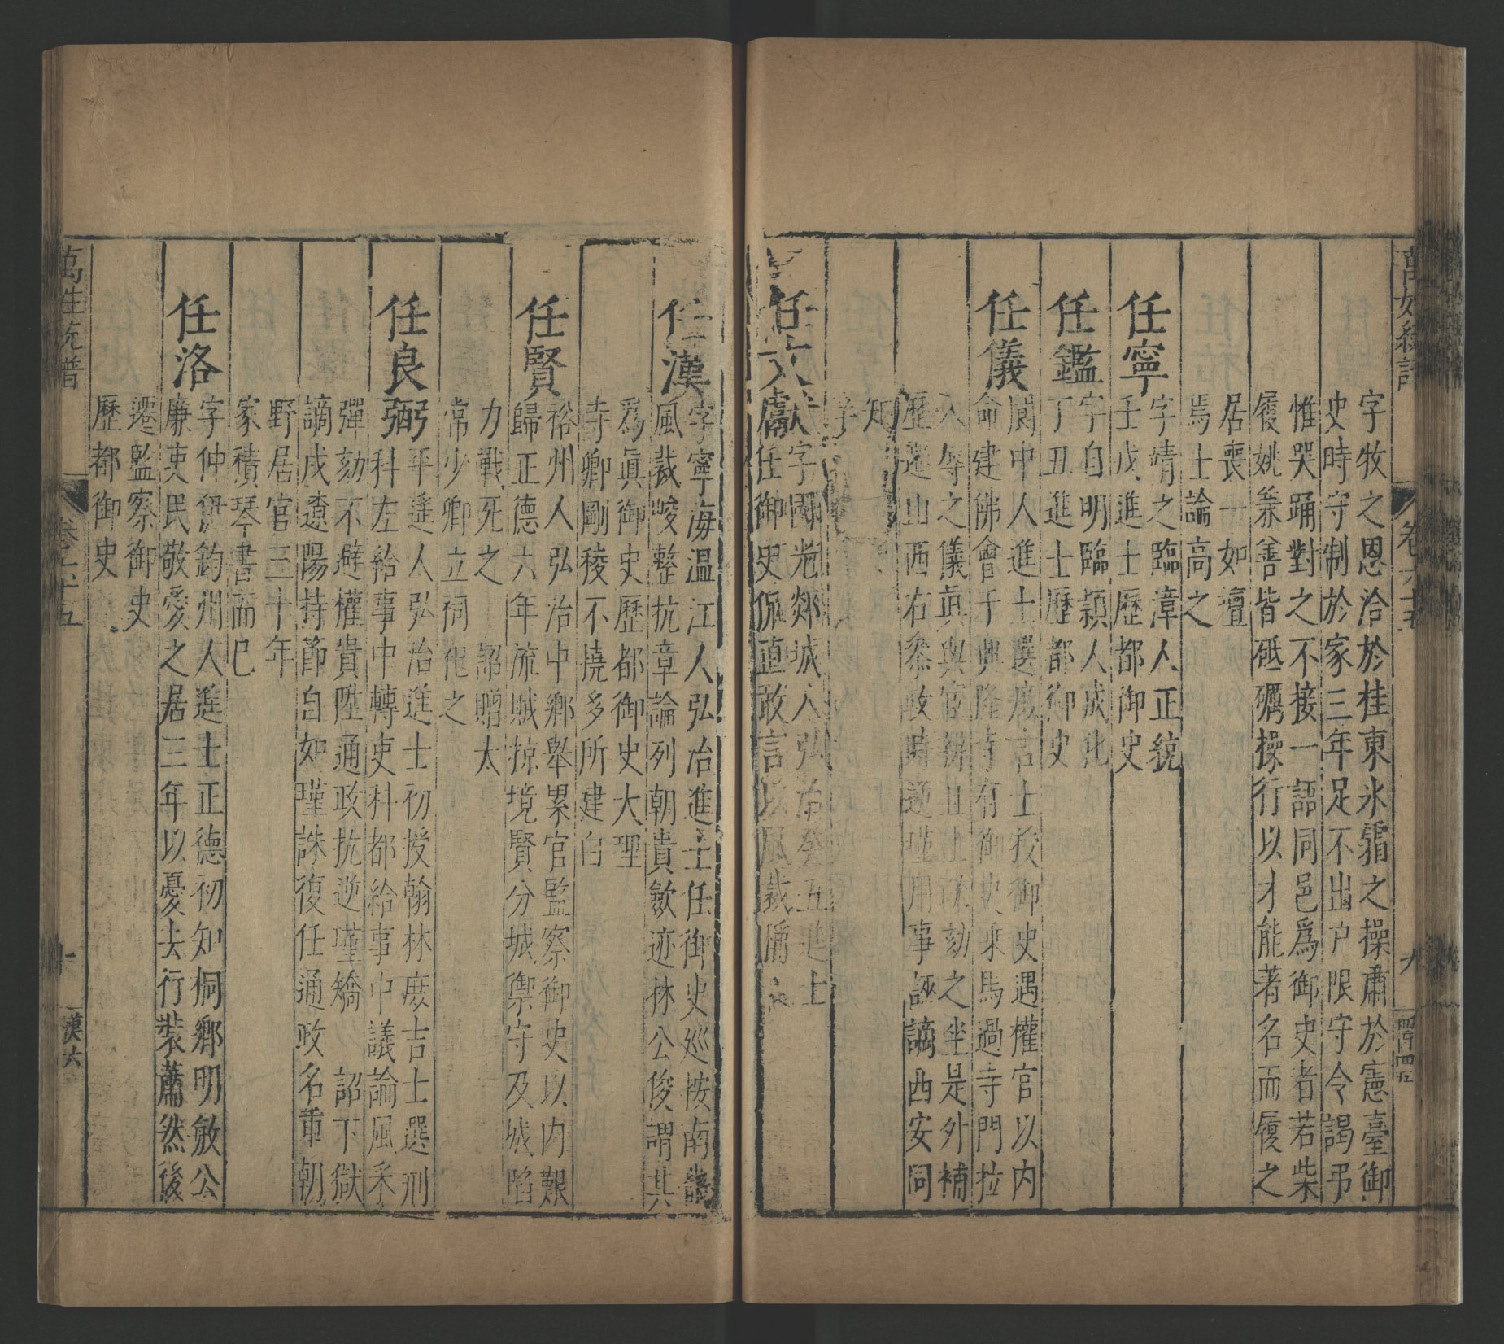 萬姓統譜 卷六十五 九
字牧之恩洽於桂東氷霜之操肅於憲臺御
史時守制於家三年足不出户限守令謁弔
惟哭踊對之不接一語同邑爲御史者若柴
履姚兼善皆砥礪操行以才能著名而履之
居喪一如禮
焉士論高之
任寧
字靖之臨漳人正統
壬戌進士歷都御史
任鑑
字自明臨潁人成化
丁丑進士歷都御史
任儀
閬中人進士選庶吉士授御史遇權官以内
命建佛會于興隆寺有御史乘馬過寺門拉
入辱之儀
劾之坐是外補
歷遷山西右叅政時逆瑾用事誣謫西安同
知
任文獻
字國光郯城人弘治癸丑進士
任御史侃直敢言以風裁稱
任漢
字寧海温江人弘治進士任御史巡按南畿
風裁峻整抗章論列朝貴歛迹林公俊謂其
爲眞御史歷都御史大理
寺卿剛稜不撓多所建白
任賢
裕州人弘治中鄉舉累官監察御史以内艱
歸正德六年流賊掠境賢分城禦守及城陷
力戰死之 詔贈太
常少卿立祠祀之
任良弼
平遥人弘治進士初授翰林庶吉士選刑
科左給事中轉吏科都給事中議論風采
彈劾不避權貴陞通政抗逆瑾矯 詔下獄
謫戍遼陽持節自如瑾誅復任通政名重朝
野居官三十年
家積琴書而已
任洛
字仲伊鈞州人進士正德初知桐鄉明敏公
廉吏民敬愛之居三年以憂去行裝蕭然後
遷監察御史
歷都御史
萬姓統譜 卷之六十五 十